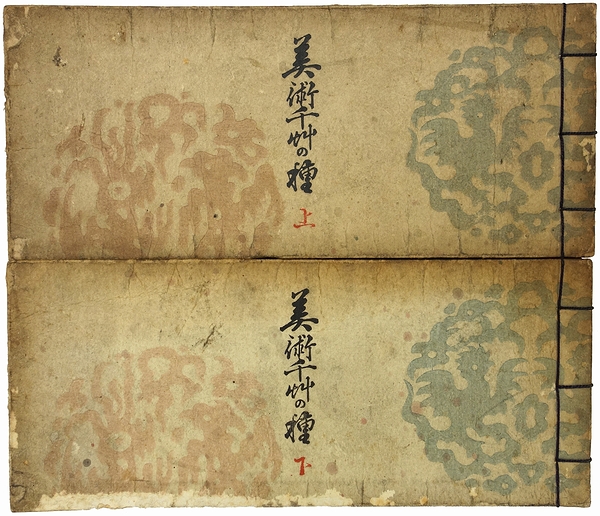 美術千艸の種
上
美術千艸の種
下